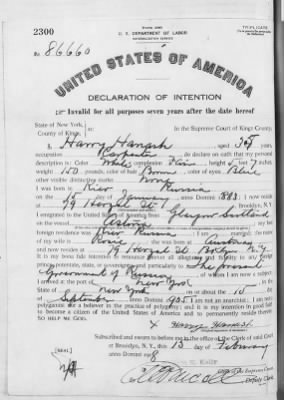 2300
Form 2203
TRIPLICATE
U. S. DEPARTMENT OF LABOR
NATURALIZATION SERVICE
No. 86660
UNITED STATES OF AMERICA
DECLARATION OF INTENTION
Invalid for all purposes seven years after the date hereof
State of New York,
County of Kings, ss:
In the Supreme Court of Kings County.
I, Harry aged 35 years,
occupation Carpenter, do declare on oath that my personal
description is: Color White, complexion Fair, height 5 feet 7 inches,
weight 150 pounds, color of hair Brown, color of eyes Blue
other visible distinctive marks None
I was born in Kiev Russia
on the 15 day of January, anno Domini 1883; I now reside
at 59 St., Brooklyn, N. Y.
I emigrated to the United States of America from Glasgow Scotland
on the vessel ; my last
foreign residence was Kiev Russia; I am married; the name
of my wife is Rosie; she was born at
and now resides at 59 St Bklyn N.Y.
It is my bona fide intention to renounce forever all allegiance and fidelity to any foreign
prince, potentate, state, or sovereignty, and particularly to The present
Government of Russia
I arrived at the port of New York
State of New York, on or about the 15 day
of September, anno Domini 1905; I am not an anarchist; I am not a
polygamist nor a believer in the practice of polygamy; and it is my intention in good faith
to become a citizen of the United States of America and to permanently reside therein:
SO HELP ME GOD.
Subscribed and sworn to before me in the office of the Clerk of said Court
at Brooklyn, N. Y., this 13 day of February
anno Domini 1918
[SEAL]
Clerk of the Supreme Court.
Deputy Clerk.